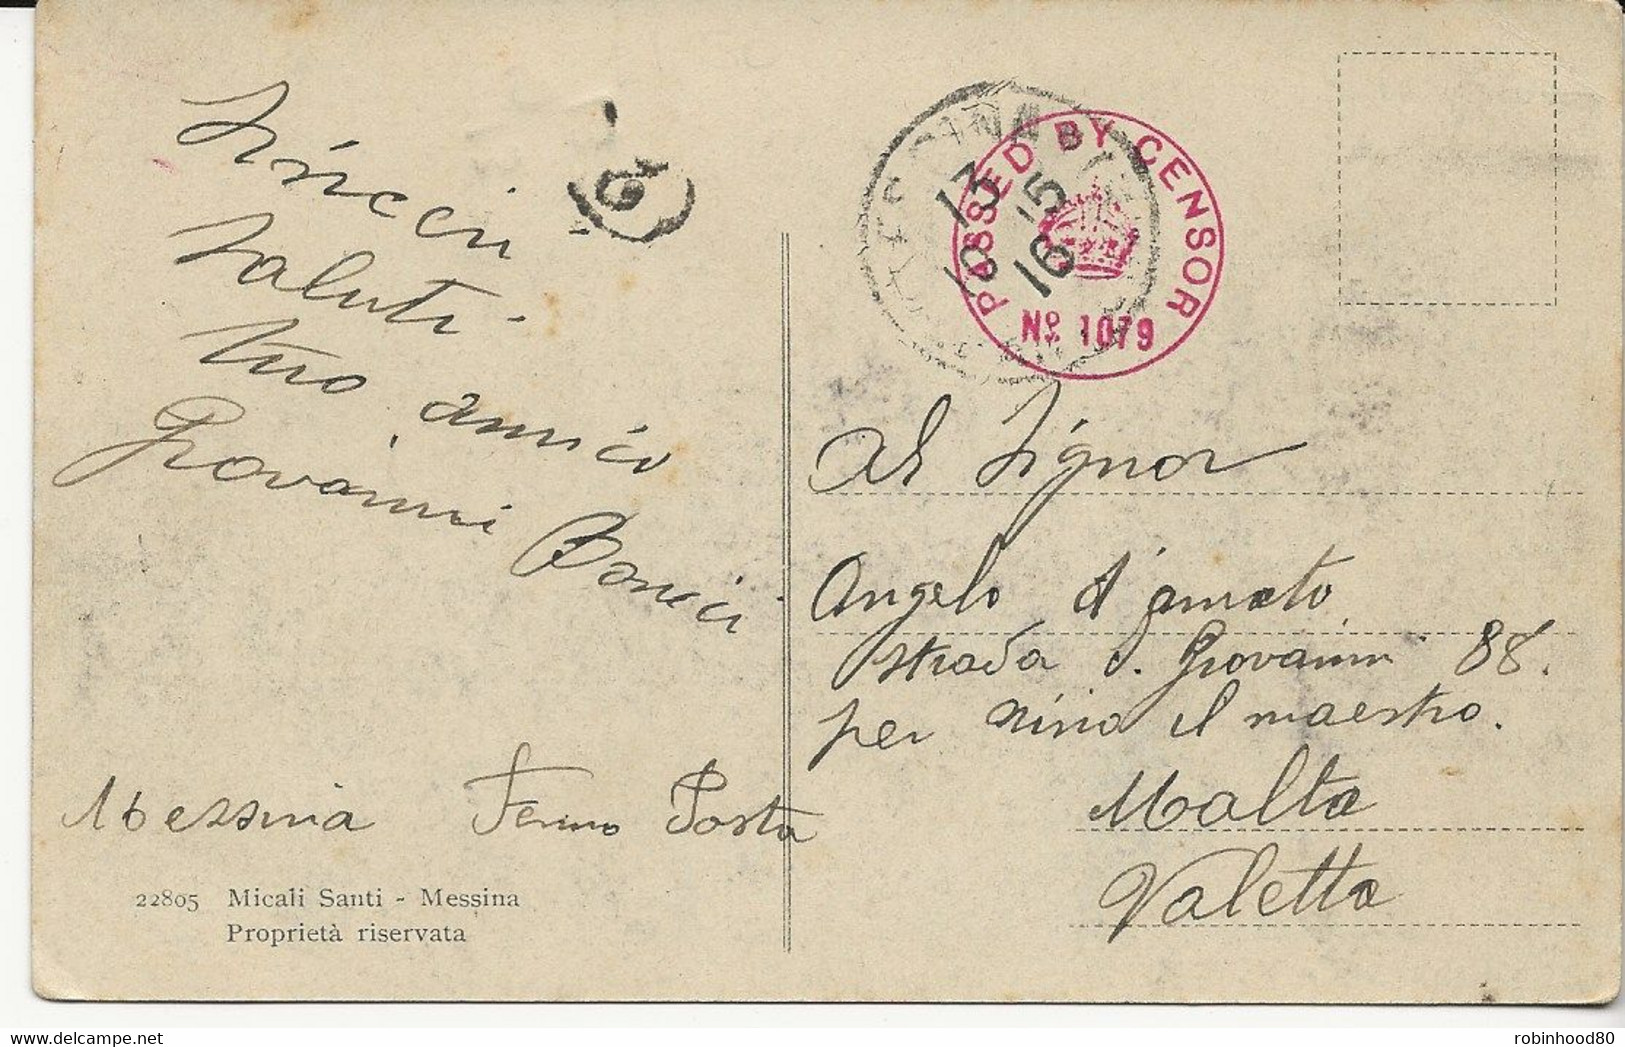 Sinceri
saluti
tuo amico
Giovanni Bonici
Messina Fermo Posta
22805 Micali Santi - Messina
Proprietà riservata
PASSED BY CENSOR
Nº 1079
13
15
16
Al Signor
Angelo d'amato
strada S. Giovanni 88.
per nino il maestro.
Malta
Valetta
robinhood80